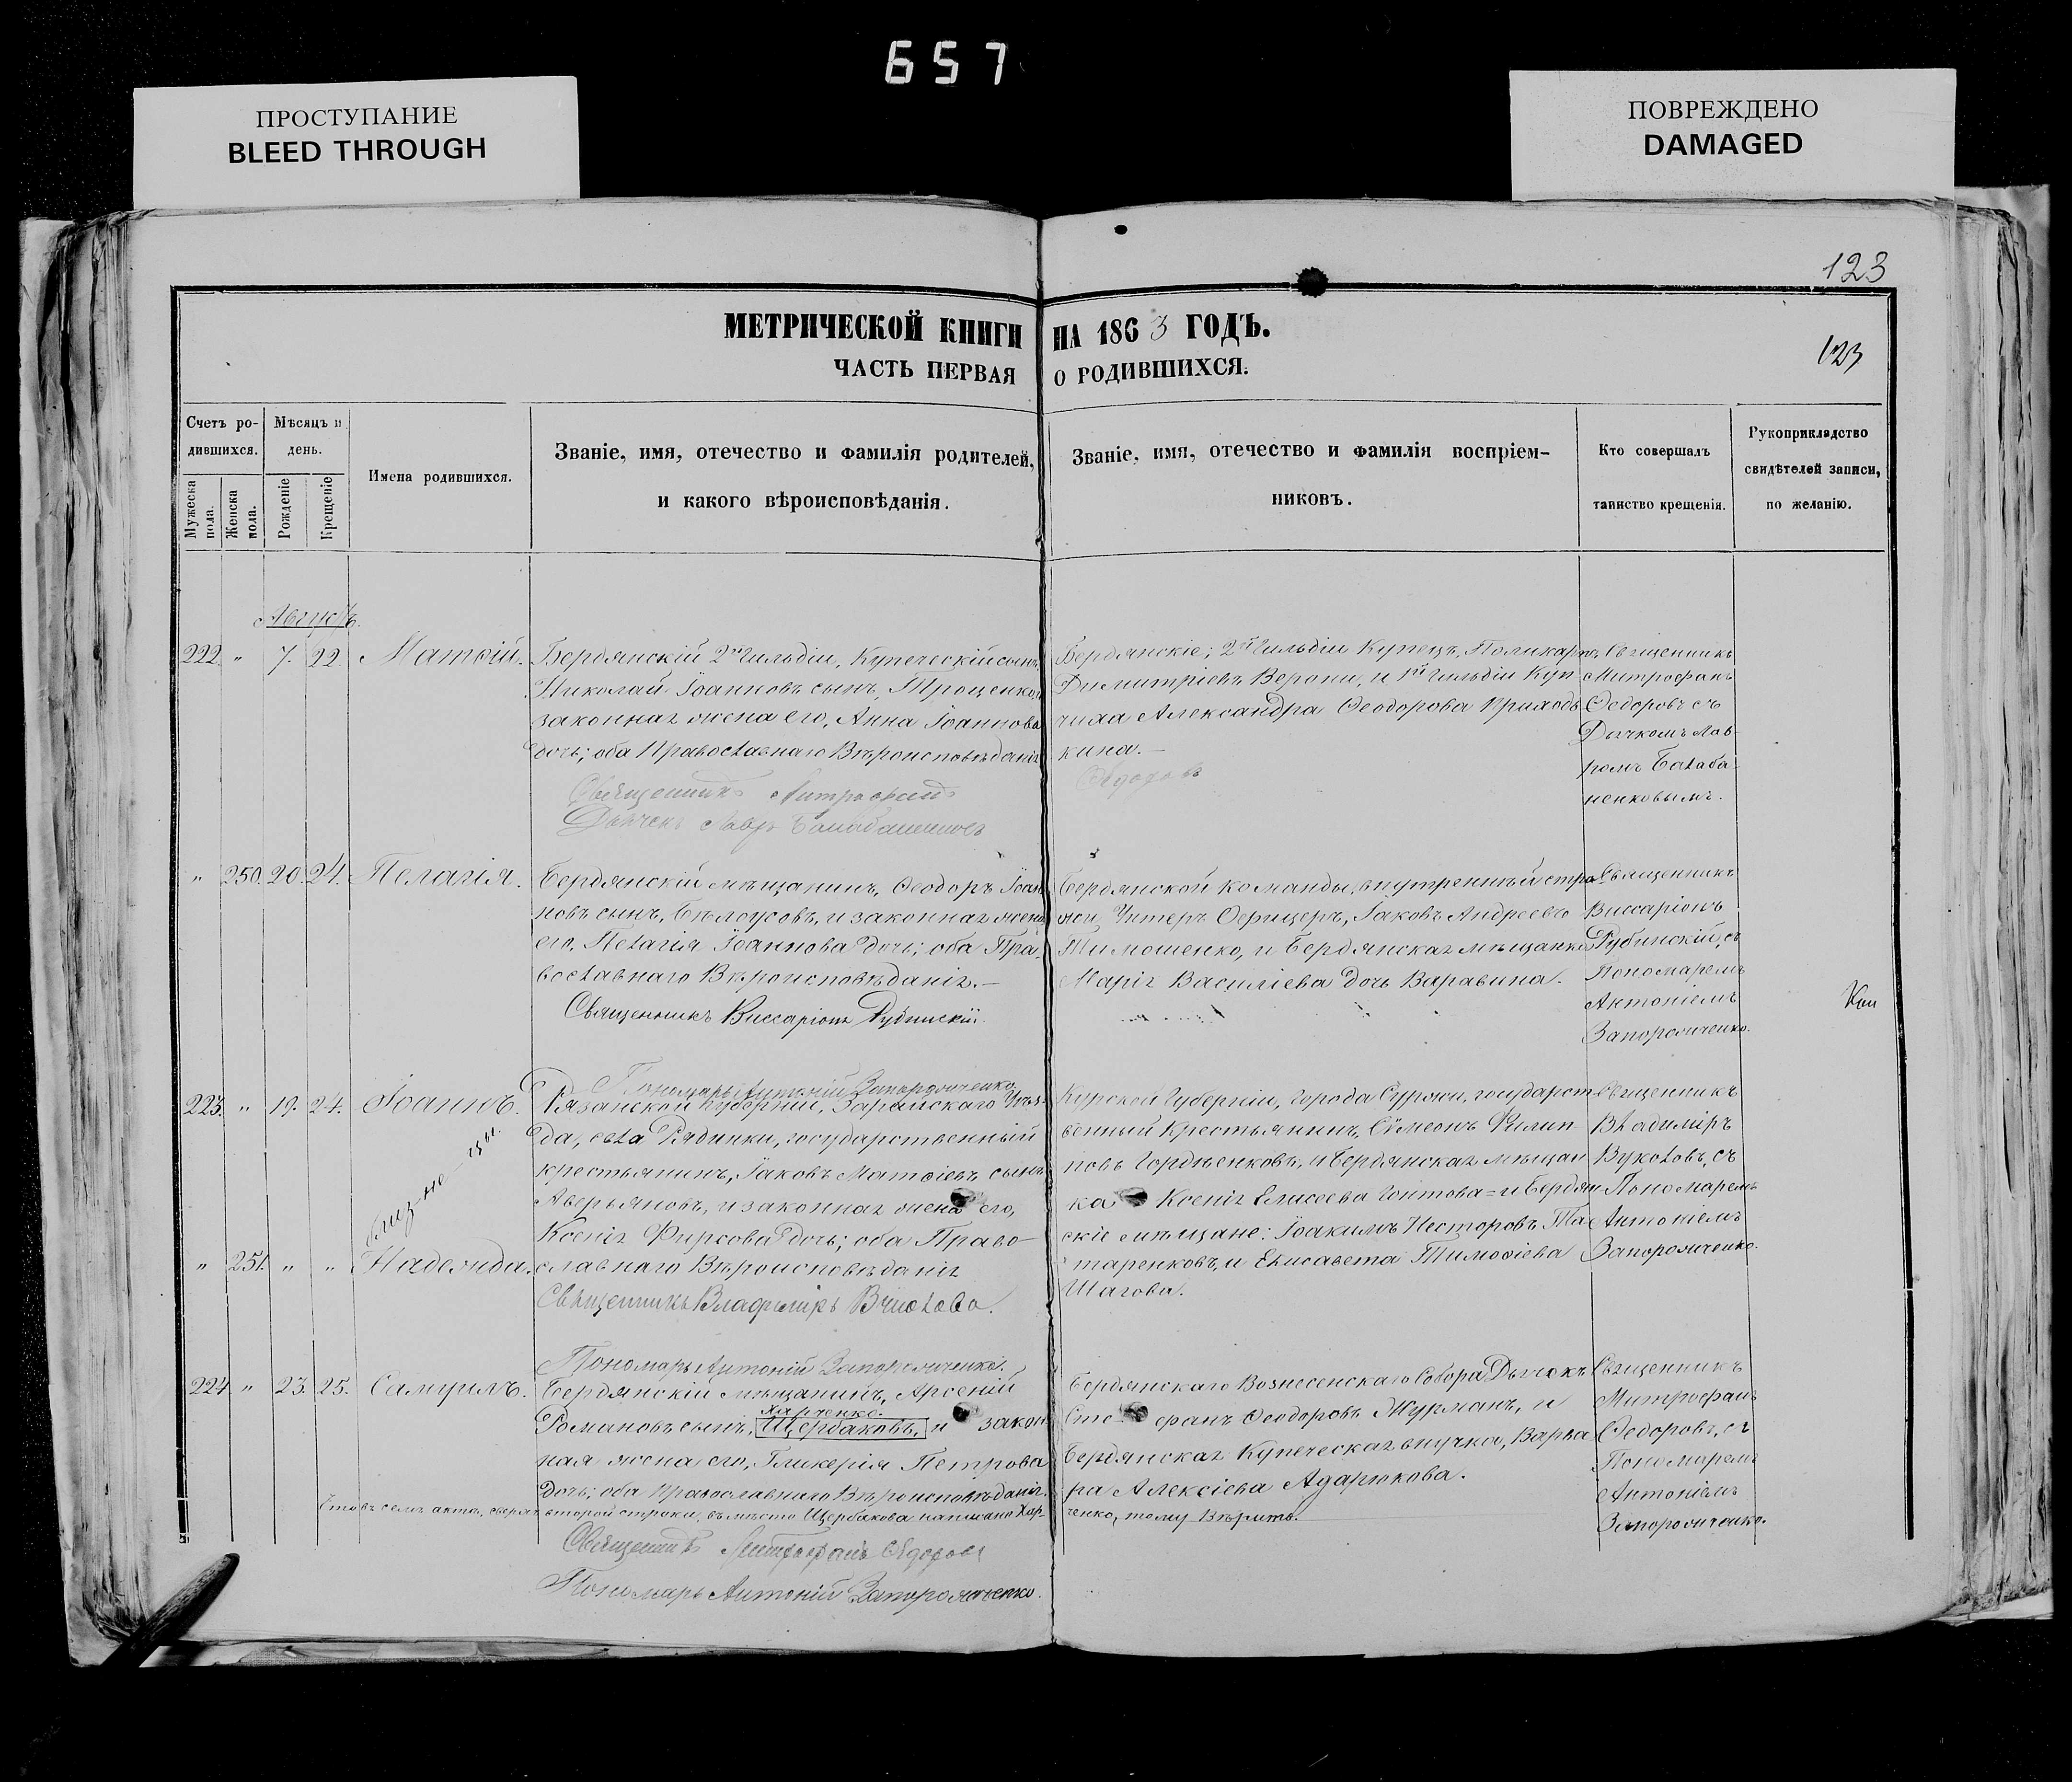 657
ПРОСТУПАНИЕ
BLEED THROUGH
ПОВРЕЖДЕНО
DAMAGED
123
МЕТРИЧЕСКОЙ КНИГИ НА 1863 ГОДЪ.
123
ЧАСТЬ ПЕРВАЯ О РОДИВШИХСЯ.
Счетъ ро-
дившихся.
Мужеска пола.
Женска пола.
Мѣсяцъ и
день.
Рожденіе
Крещеніе
Имена родившихся.
Званіе, имя, отечество и фамилія родителей,
и какого вѣроисповѣданія.
Званіе, имя, отечество и фамилія воспріем-
никовъ.
Кто совершалъ
таинство крещенія.
Рукоприкладство
свидѣтелей записи,
по желанію.
Августъ.
222. " 7. 22. Матѳій.
Бердянскій 2й Гильдіи, Купеческій сынъ,
Николай Іоанновъ сынъ, Троценко,
законная жена его, Анна Іоаннова
дочь; оба Православнаго Вѣроисповѣданія
Священникъ Митрофанъ Ѳедоровъ
Дьячекъ Лавръ Балабаненковъ
Бердянскіе; 2й Гильдіи Купецъ, Поликарпъ
Димитріевъ Верони, и 1й Гильдіи Куп
чиха Александра Ѳеодорова Приходь
кина.
Священникъ
Митрофанъ
Ѳедоровъ съ
Дьячкомъ Лав
ромъ Балаба
ненковымъ.
" 250. 20. 24. Пелагія.
Бердянскій мѣщанинъ, Ѳеодоръ Іоан
новъ сынъ, Бѣлоусовъ, и законная жена
его, Пелагія Іоаннова дочь; оба Пра
вославнаго Вѣроисповѣданія.
Священникъ Виссаріонъ Рубинскій.
Пономарь Антоній Запорожченко.
Бердянской команды, внутренней стра
жи, Унтеръ Офицеръ, Іаковъ Андреевъ
Тимошенко, и Бердянская мѣщанка
Марія Василіева дочь Варавина.
Священникъ
Виссаріонъ
Рубинскій, съ
Пономаремъ
Антоніемъ
Запорожченко.
223. " 19. 24. Іоаннъ.
близ-не-цы.
" 251. " " Надежда.
Рязанской Губерніи, Зарайскаго Уѣз-
да, села Рядинки, государственный
крестьянинъ, Іаковъ Матѳіевъ сынъ
Аверьяновъ, и законная жена его,
Ксенія Фирсова дочь; оба Право-
славнаго Вѣроисповѣданія
Священникъ Владиміръ Вуколовъ.
Пономарь Антоній Запорожченко.
Курской Губерніи, города Суржи, государст
венный Крестьянинъ, Сѵмеонъ Филип
повъ Гордѣенковъ, и Бердянская мѣщан
ка Ксенія Елисеева Гоитова = и Бердян
скіе мѣщане: Іоакимъ Несторовъ Та
таренковъ, и Елисавета Тимоѳіева
Шагова.
Священникъ
Владиміръ
Вуколовъ, съ
Пономаремъ
Антоніемъ
Запорожченко.
224. " 23. 25. Самуилъ.
Бердянскій мѣщанинъ, Арсеній
Харченко.
Романовъ сынъ, Щербаковъ, и закон
ная жена его, Гликерія Петрова
дочь; оба православнаго Вѣроисповѣданія.
Бердянскаго Вознесенскаго Собора Дьячекъ
Стефанъ Ѳеодоровъ Журманъ, и
Бердянская Купеческая внучка, Варва
ра Алексіева Адарюкова.
Что въ семъ актѣ, сверхъ второй строки, вмѣсто Щербакова написано Хар-
ченко, тому Вѣрить.
Священникъ Митрофанъ Ѳедоровъ
Пономарь Антоній Запорожченко.
Священникъ
Митрофанъ
Ѳедоровъ, съ
Пономаремъ
Антоніемъ
Запорожченко.